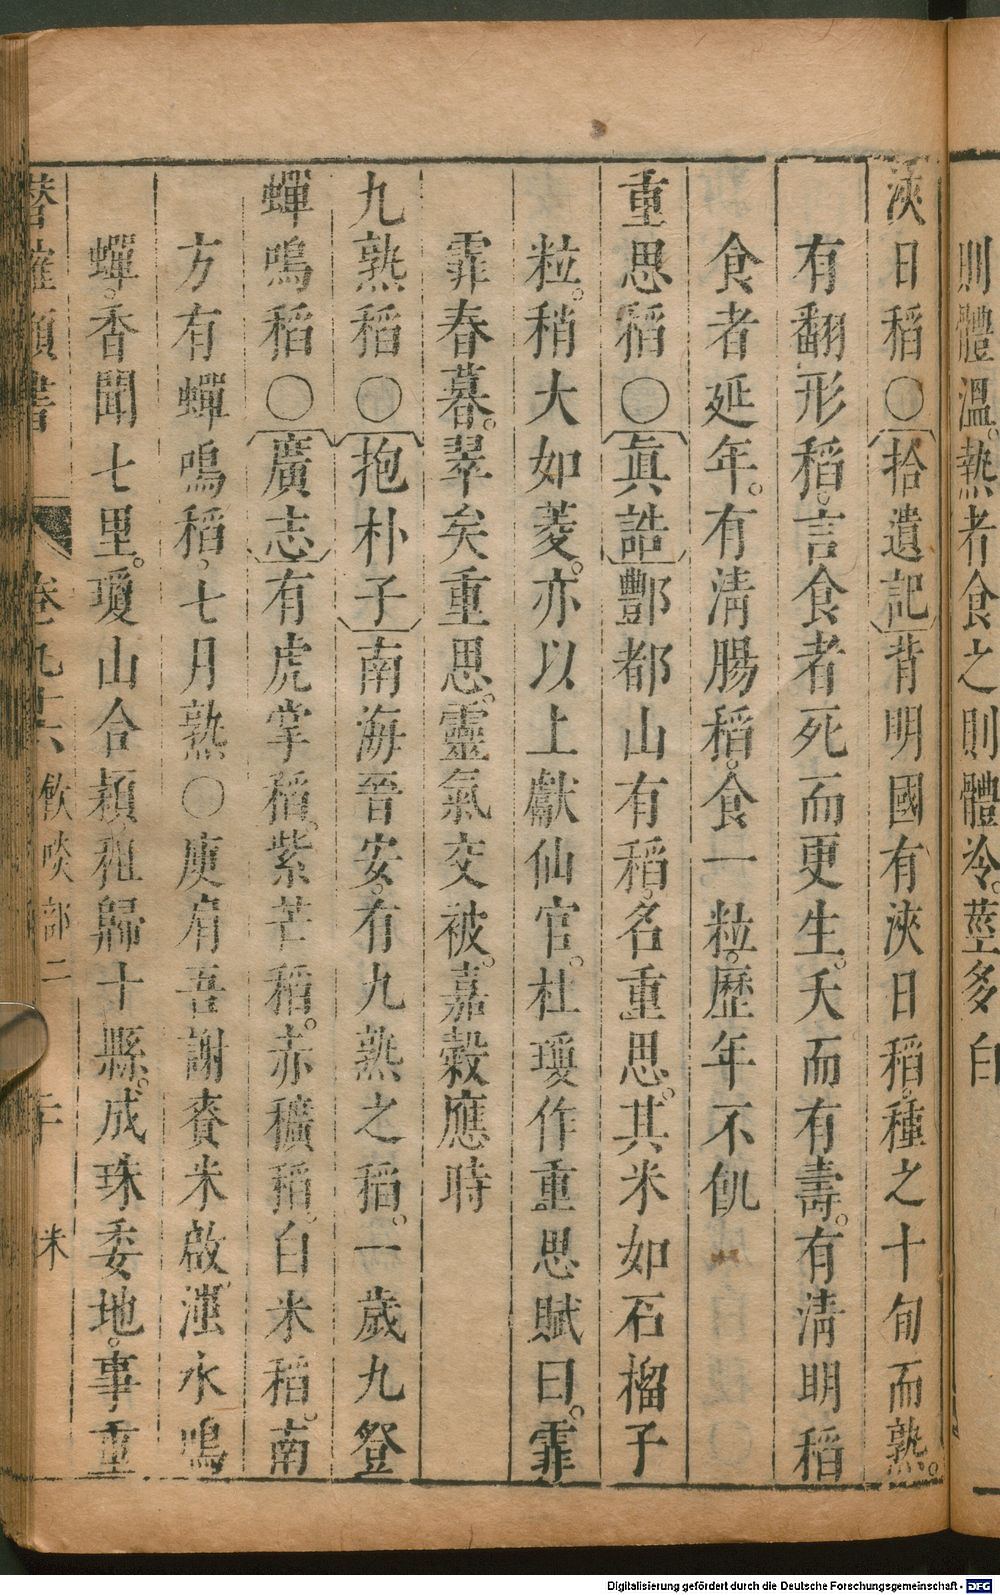 則體溫。熱者食之則體冷。莖多白
浹日稻〇〔拾遺記〕背明國有浹日稻。種之十旬而熟。
有翻形稻。言食者死而更生。夭而有壽。有清明稻
食者延年。有清腸稻。食一粒。歷年不飢
重思稻〇〔眞誥〕酆都山有稻。名重思。其米如石榴子
粒。稍大如菱。亦以上獻仙官。杜瓊作重思賦曰。霏
霏春暮。翠矣重思。靈氣交被。嘉穀應時
九熟稻〇〔抱朴子〕南海晉安。有九熟之稻。一歲九登
蟬鳴稻〇〔廣志〕有虎掌稻。紫芒稻。赤穬稻。白米稻。南
方有蟬鳴稻。七月熟〇庾肩吾謝賚米啟。滍水鳴
蟬。香聞七里。瓊山合穎。租歸十縣。成珠委地。事重
潛確類書 卷九十六 飲啖部二 二十 米
Digitalisierung gefördert durch die Deutsche Forschungsgemeinschaft - DFG